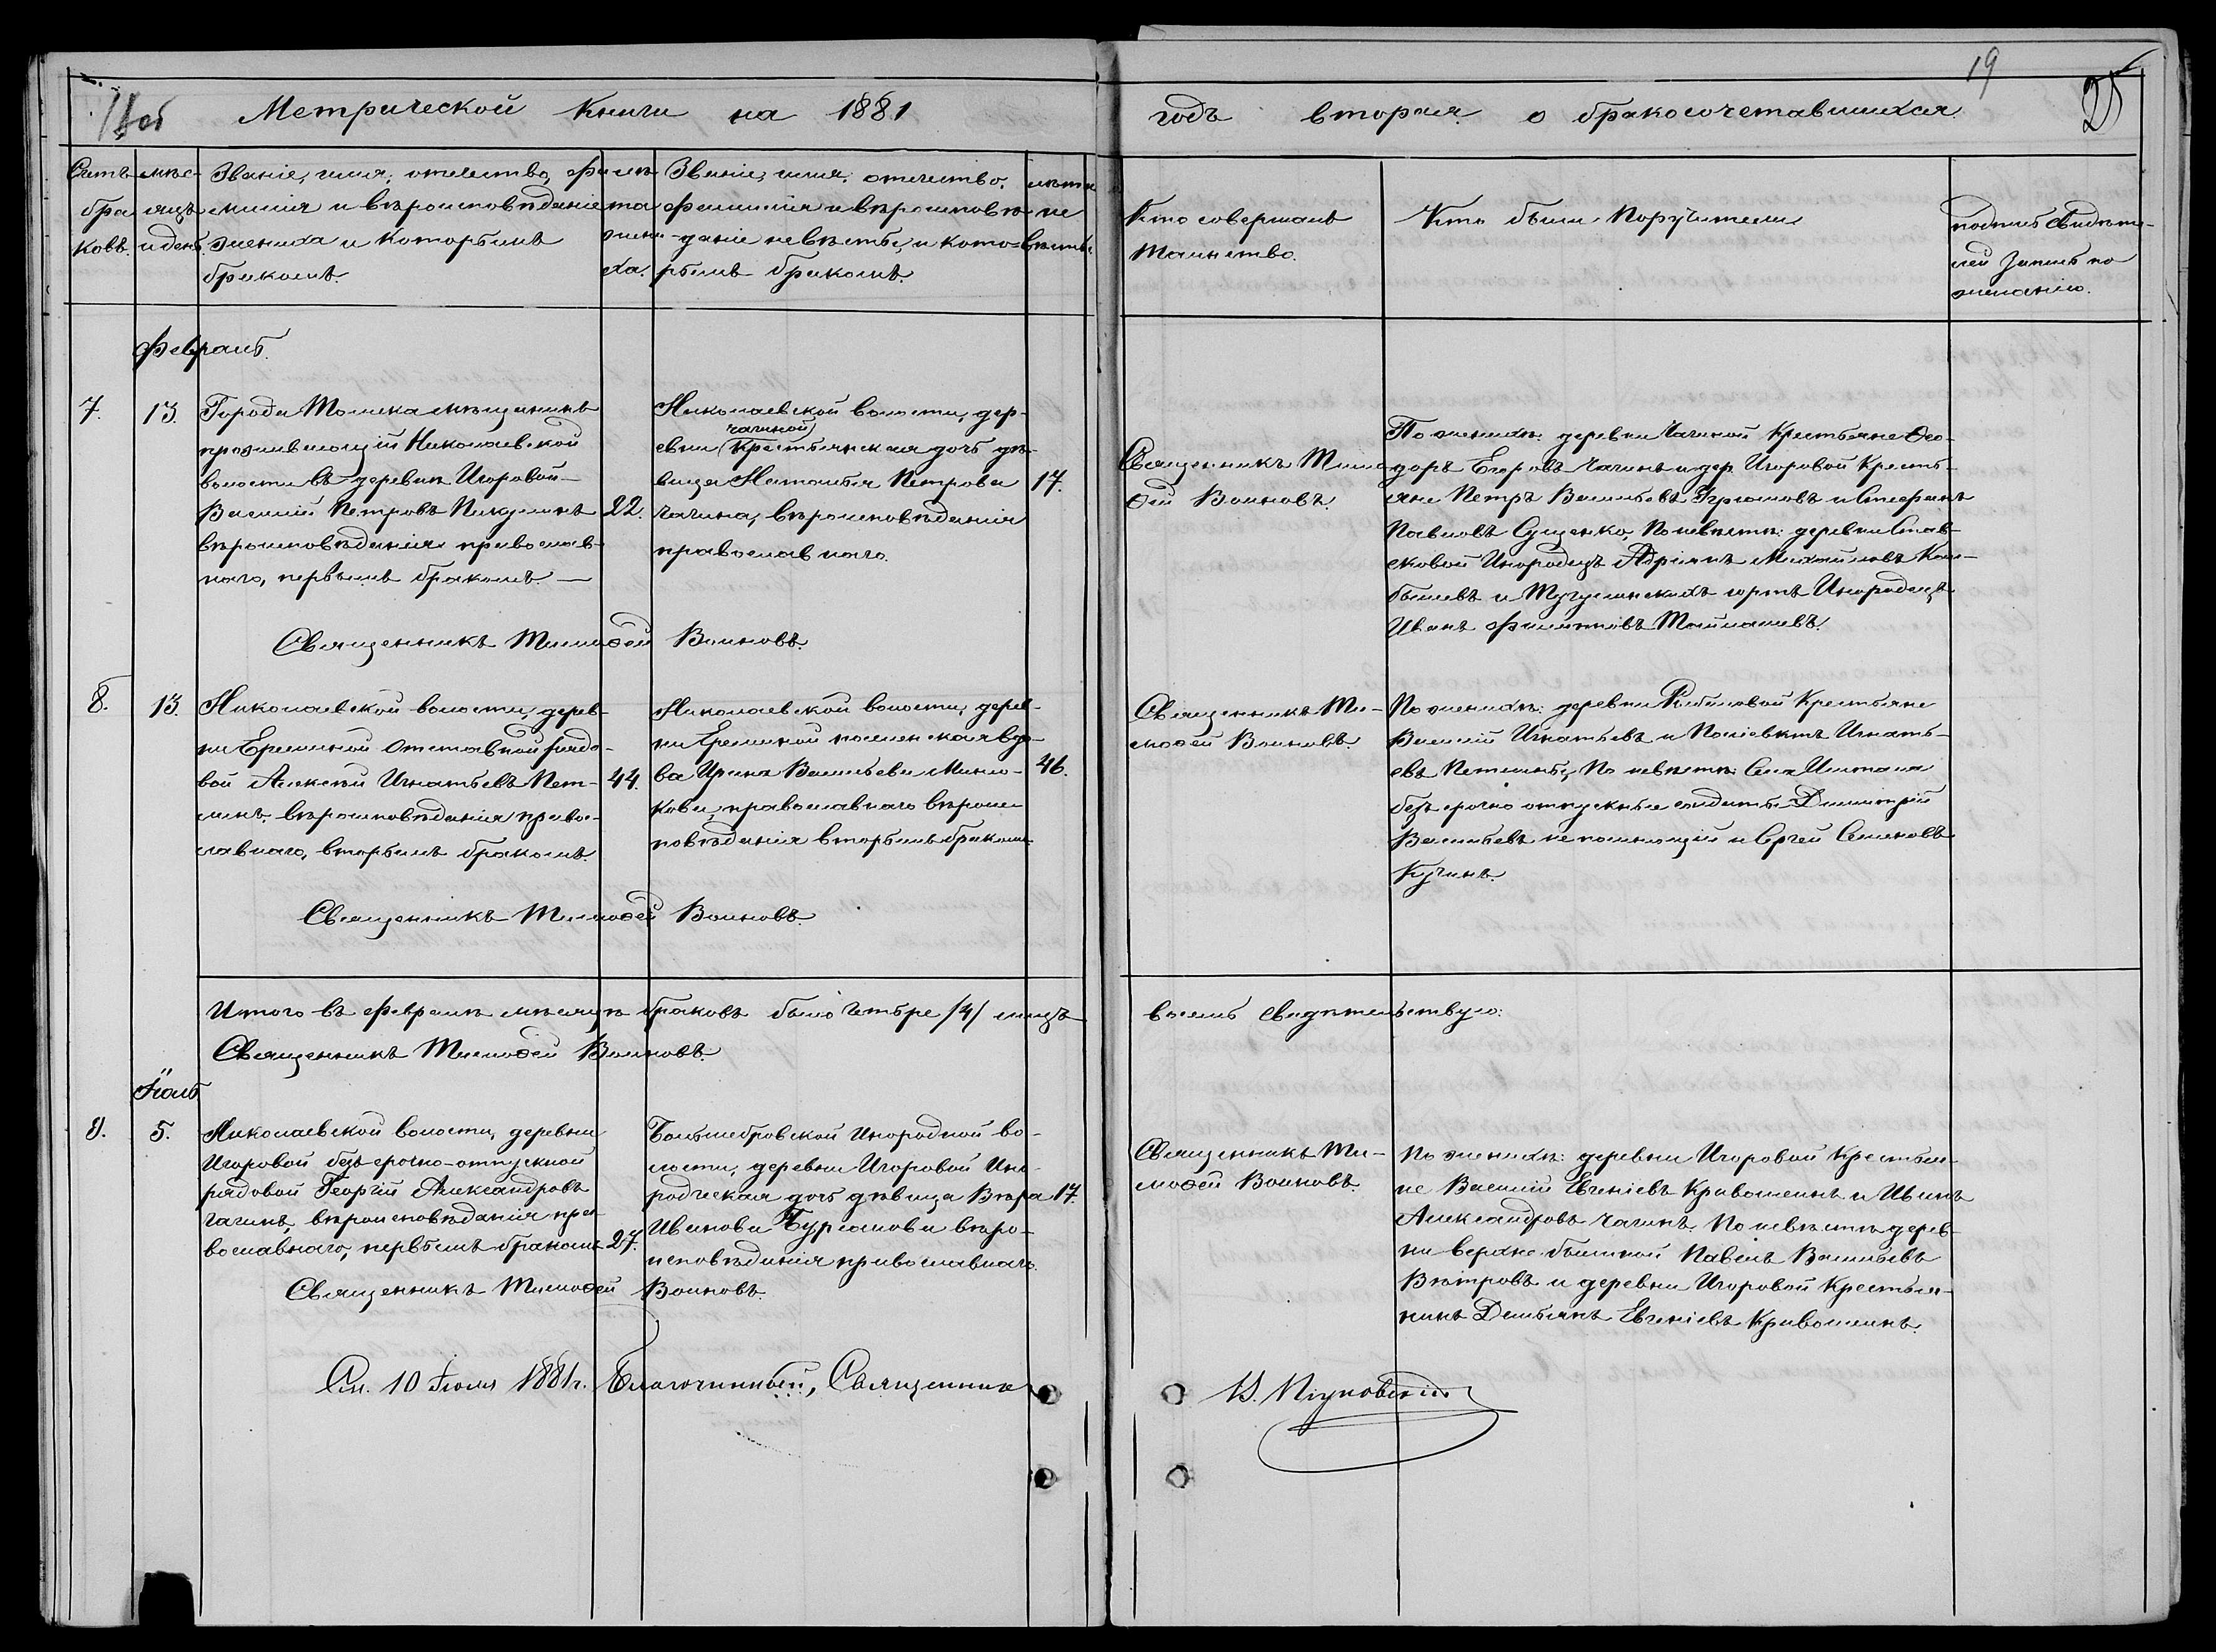 19
25
Метрической книги на 1881
годъ вторая о бракосочетавшихся
Счетъ браковъ.
мѣсяцъ и день.
Званіе, имя, отечество, фамилія и вѣроисповѣданіе
жениха и которымъ
бракомъ.
лѣта жениха.
Званіе, имя, отечество,
фамилія и вѣроисповѣ-
даніе невѣсты, и кото-
рымъ бракомъ.
лѣта невѣсты.
Кто совершалъ
таинство.
Кто были поручители
подпись свидѣте-
лей записи по
желанію.
Февраль.
7.
13.
Города Томска мѣщанинъ
проживающій Николаевской
волости въ деревни Игоровой
Василій Петровъ
вѣроисповѣданія православ-
наго, первымъ бракомъ. —
22.
Николаевской волости, дер-
чагиной
евни крестьянская дочь дѣ-
вица Наталья Петрова
Чагина, вѣроисповѣданія
православнаго.
17.
Священникъ Тимо-
ѳей Воиновъ.
По женихѣ: деревни Чагиной крестьяне Ѳео-
доръ Егоровъ Чагинъ и дер. Игоровой кресть-
яне Петръ Васильевъ и Стефанъ
Павловъ Сущенко, по невѣстѣ: деревни
инородецъ Адріанъ Михайловъ
и юртъ инородецъ
Иванъ Филиповъ
Священникъ Тимоѳей Воиновъ.
8.
13.
Николаевской волости, дерев-
ни Ереминой отставной рядо-
вой Алексѣй Игнатьевъ Пет-
линъ, вѣроисповѣданія правос-
лавнаго, вторымъ бракомъ.
44.
Николаевской волости, дерев-
ни Ереминой вдо-
ва Ирина Васильева
православнаго вѣроис-
повѣданія вторымъ бракомъ.
46.
Священникъ Ти-
моѳей Воиновъ.
По женихѣ: деревни крестьяне
Василій Игнатьевъ и Полиевктъ Игнать-
евъ Петлины, по невѣстѣ: села
безсрочно отпускные солдаты Димитрій
Васильевъ непомнющій и Сргей Семеновъ
Кучинъ.
Священникъ Тимоѳей Воиновъ.
Итого въ Февралѣ мѣсяцѣ браковъ было четыре /4/ лицъ
восемь свидѣтельствую:
Священникъ Тимоѳей Воиновъ.
Іюль
9.
5.
Николаевской волости, деревни
Игоровой безсрочно-отпускной
рядовой Георгій Александровъ
Чагинъ, вѣроисповѣданія пра-
вославнаго, первымъ бракомъ
27.
инородной во-
лости, деревни Игоровой ино-
родческая дочь дѣвица Вѣра
Иванова Бурлакова вѣро-
исповѣданія православнаго.
17.
Священникъ Ти-
моѳей Воиновъ.
По женихѣ: деревни Игоровой крестья-
не Василій Евгеніевъ Кривошеинъ и Иванъ
Александровъ Чагинъ. По невѣстѣ дерев-
ни Павелъ Васильевъ
Вѣтровъ и деревни Игоровой крестья-
нинъ Демьянъ Евгеніевъ Кривошеинъ.
Священникъ Тимоѳей Воиновъ.
См. 10 Іюля 1881 г. Благочинный, Священникъ